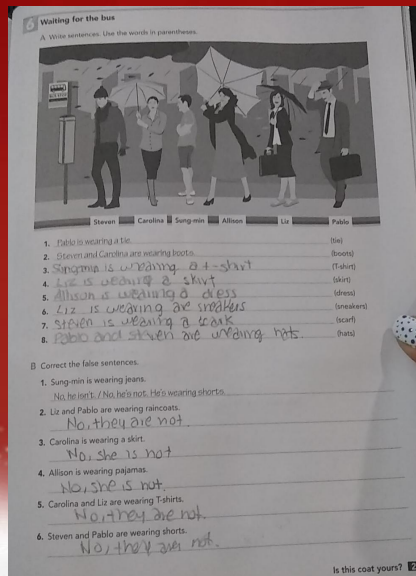 6 Waiting for the bus
A Write sentences. Use the words in parentheses.
BUS STOP
Steven Carolina Sung-min Allison Liz Pablo
1. Pablo is wearing a tie. (tie)
2. Steven and Carolina are wearing boots. (boots)
3. Sungmin is wearing a t-shirt (T-shirt)
4. Liz is wearing a skirt (skirt)
5. Allison is wearing a dress (dress)
6. Liz is wearing are sneakers (sneakers)
7. Steven is wearing a scark (scarf)
8. Pablo and steven are wearing hats. (hats)
B Correct the false sentences.
1. Sung-min is wearing jeans.
No, he isn't. / No, he's not. He's wearing shorts.
2. Liz and Pablo are wearing raincoats.
No, they are not.
3. Carolina is wearing a skirt.
No, she is not
4. Allison is wearing pajamas.
No, she is not.
5. Carolina and Liz are wearing T-shirts.
No, they are not.
6. Steven and Pablo are wearing shorts.
No, they are not.
Is this coat yours?